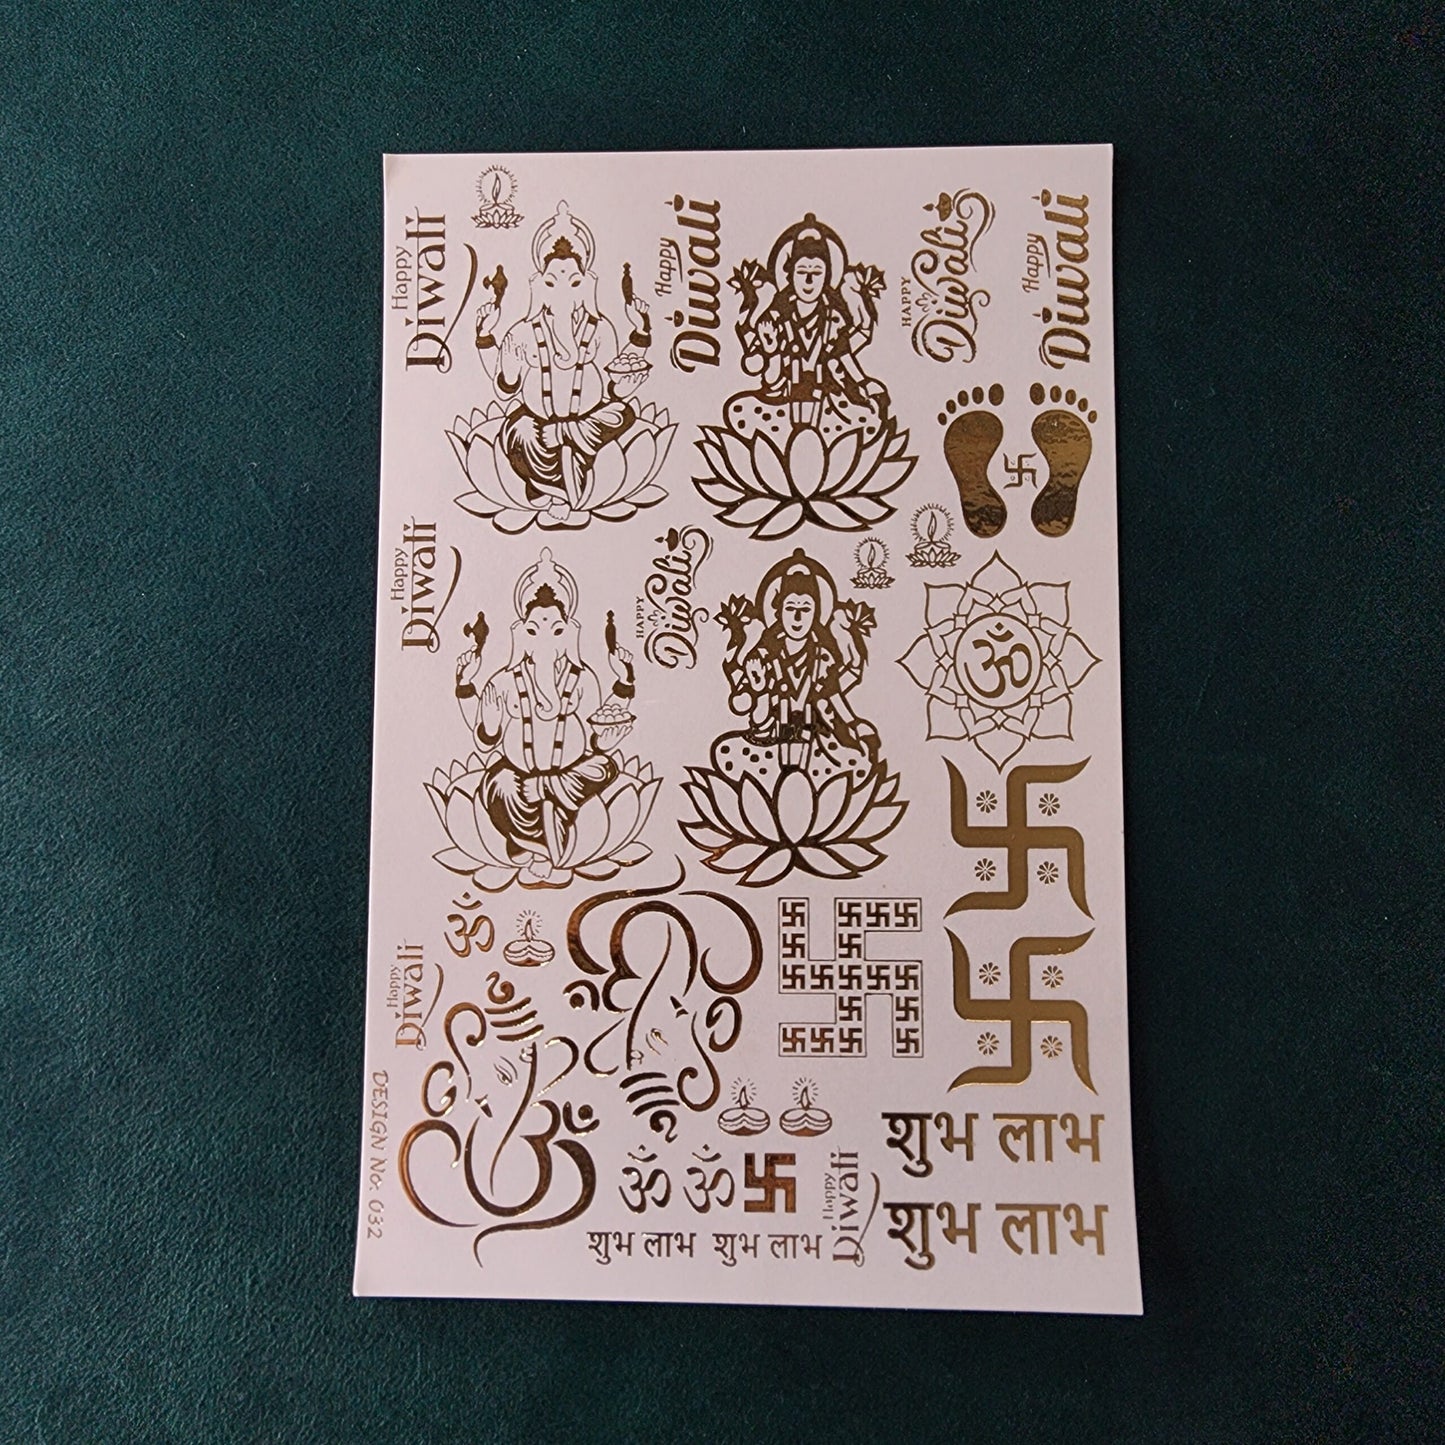 Happy
Diwali
Happy
Diwali
HAPPY
Diwali
Happy
Diwali
Happy
Diwali
HAPPY
Diwali
ॐ
ॐ
Happy
Diwali
DESIGN No: 032
ॐ ॐ
Happy
Diwali
शुभ लाभ
शुभ लाभ
शुभ लाभ शुभ लाभ